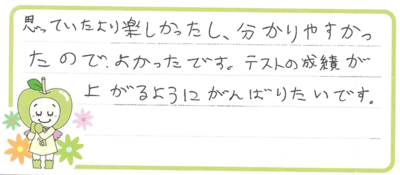 思っていたより楽しかったし、分かりやすかっ
たので、よかったです。テストの成績が
上がるようにがんばりたいです。